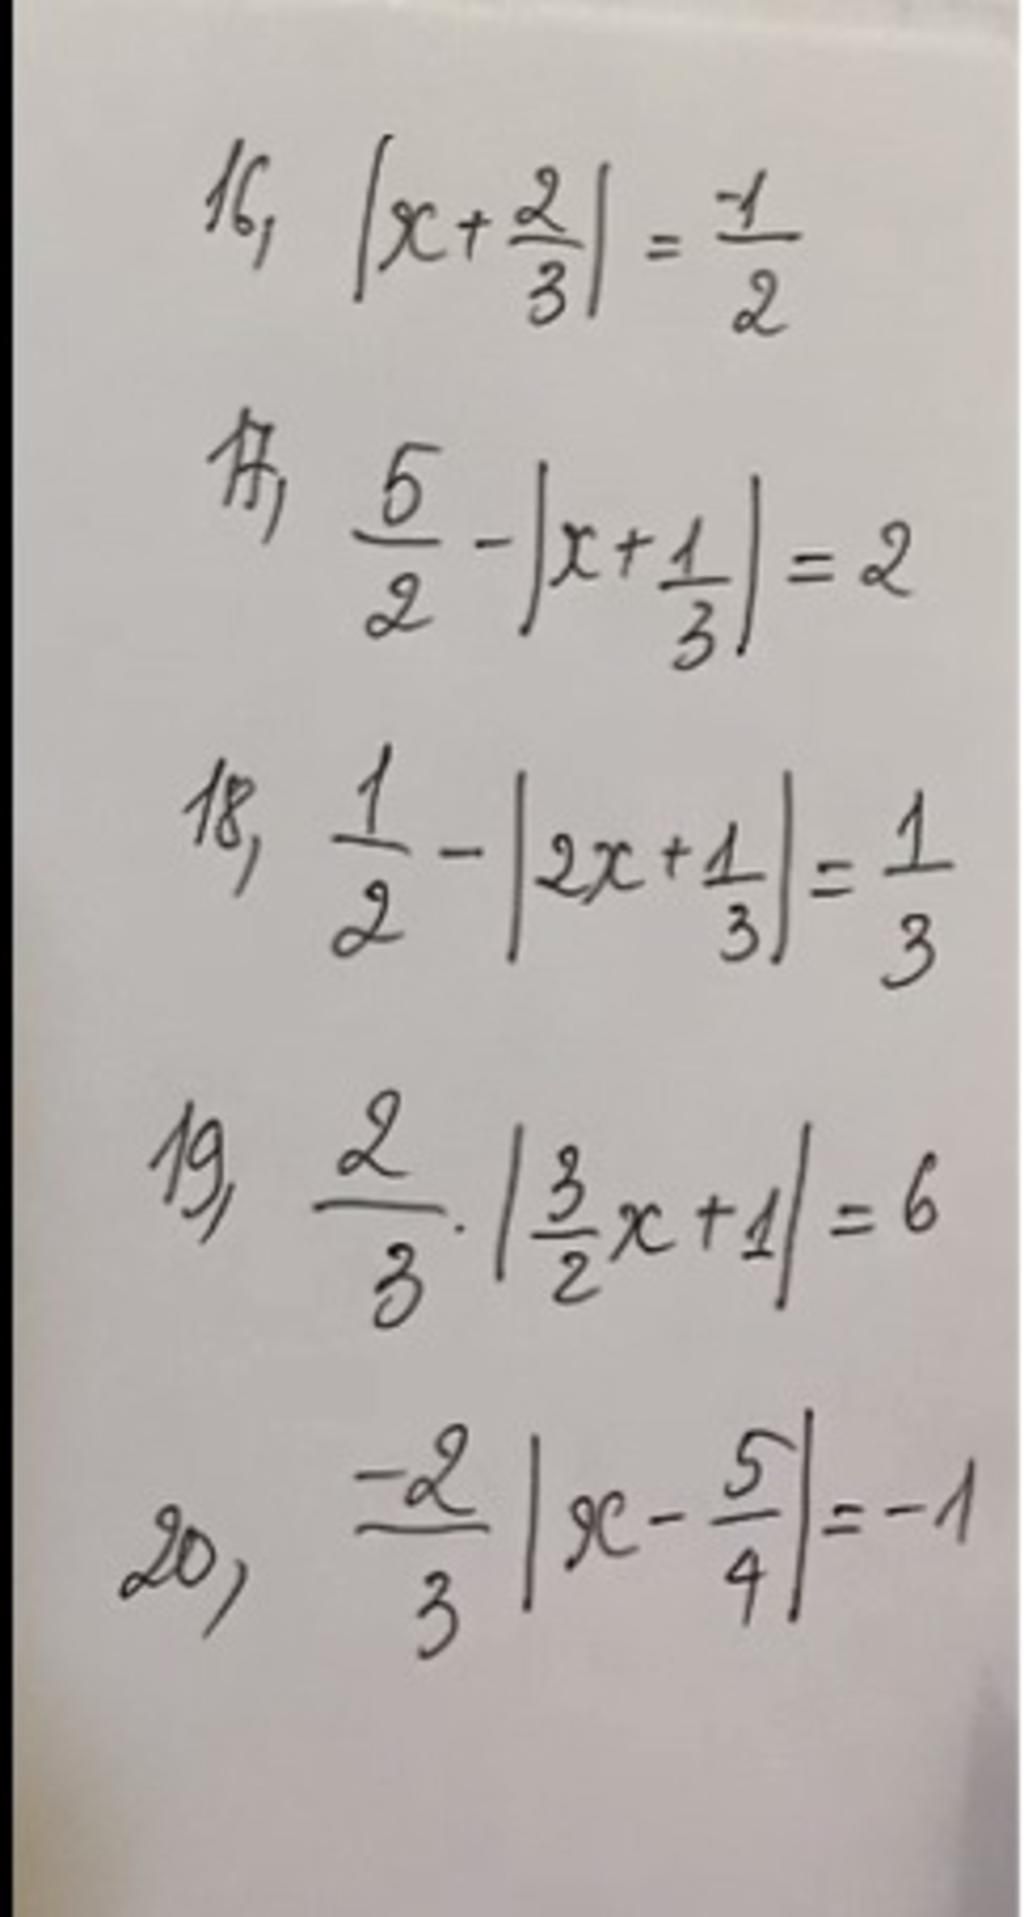 16, |x + 2/3| = -1/2
17, 5/2 - |x + 1/3| = 2
18, 1/2 - |2x + 1/3| = 1/3
19, 2/3 . |3/2 x + 1| = 6
20, -2/3 |x - 5/4| = -1